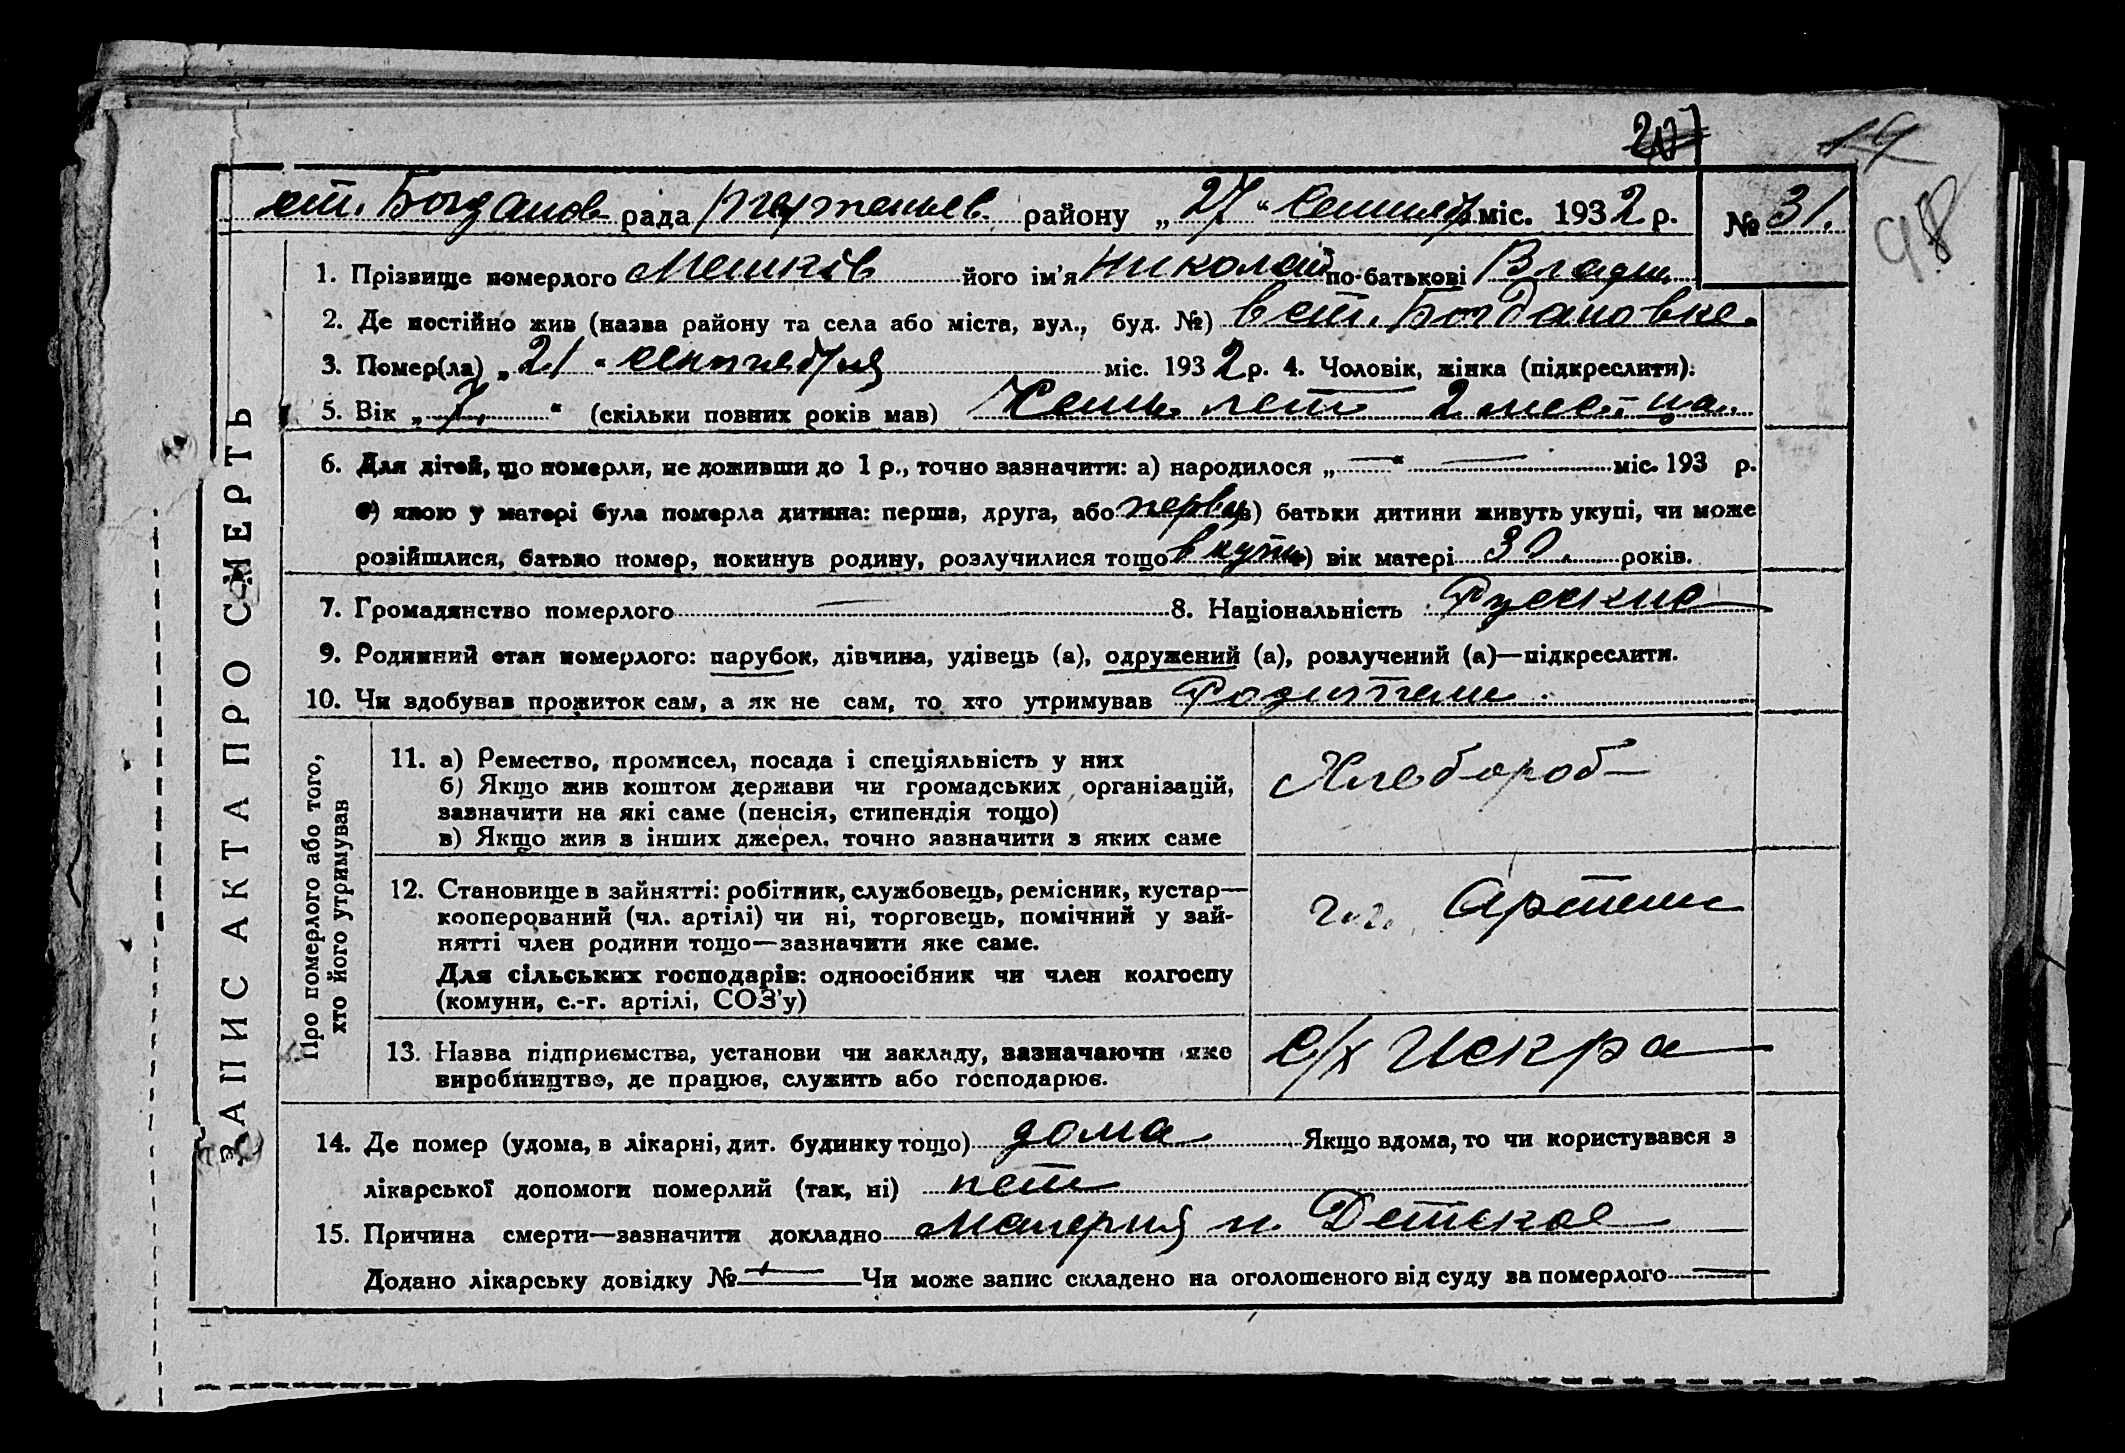 14
98
ст. Богданов рада району „ 27 “ Сентябр міс. 1932 р. № 31.
1. Прізвище померлого Мешків його ім’я Николай по-батькові Владим
2. Де постійно жив (назва району та села або міста, вул., буд. №) в ст. Богдановке.
3. Помер(ла) „ 21 “ сентября міс. 1932 р. 4. Чоловік, жінка (підкреслити).
5. Вік „ 7. “ (скільки повних років мав) Семь лет 2 мес-ца.
6. Для дітей, що померли, не доживши до 1 р., точно зазначити: а) народилося „ — “ — міс. 193 р.
б) якою у матері була померла дитина: перша, друга, або в) батьки дитини живуть укупі, чи може
розійшлися, батько помер, покинув родину, розлучилися тощо вкупи г) вік матері 30. років.
7. Громадянство померлого — 8. Національність Русские
9. Родинний стан померлого: парубок, дівчина, удівець (а), одружений (а), розлучений (а)—підкреслити.
10. Чи здобував прожиток сам, а як не сам, то хто утримував Родители.
ЗАПИС АКТА ПРО СМЕРТЬ
Про померлого або того,
хто його утримував
11. а) Ремество, промисел, посада і спеціяльність у них
б) Якщо жив коштом держави чи громадських організацій,
зазначити на які саме (пенсія, стипендія тощо)
в) Якщо жив з інших джерел, точно зазначити з яких саме
Хлебороб
12. Становище в зайнятті: робітник, службовець, ремісник, кустар—
кооперований (чл. артілі) чи ні, торговець, помічний у зай-
нятті член родини тощо—зазначити яке саме.
Для сільських господарів: одноосібник чи член колгоспу
(комуни, с.-г. артілі, СОЗ’у)
Артели
13. Назва підприємства, установи чи закладу, зазначаючи яке
виробництво, де працює, служить або господарює.
с/х Искра
14. Де помер (удома, в лікарні, дит. будинку тощо) дома Якщо вдома, то чи користувався з
лікарської допомоги померлий (так, ні) нет
15. Причина смерти—зазначити докладно Малерия и Детское
Додано лікарську довідку № — Чи може запис складено на оголошеного від суду за померлого —